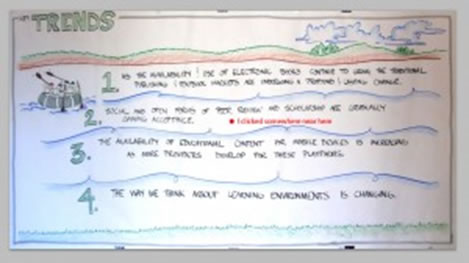 TRENDS
1. AS THE AVAILABILITY & USE OF ELECTRONIC BOOKS CONTINUE TO GROW THE TRADITIONAL
PUBLISHING TEXTBOOK MARKETS ARE UNDERGOING A PROFOUND & LASTING CHANGE.
2. SOCIAL AND OPEN FORMS OF PEER REVIEW AND SCHOLARSHIP ARE GRADUALLY
GAINING ACCEPTANCE.
I clicked somewhere near here
3. THE AVAILABILITY OF EDUCATIONAL CONTENT FOR MOBILE DEVICES IS INCREASING
AS MORE PROVIDERS DEVELOP FOR THESE PLATFORMS.
4. THE WAY WE THINK ABOUT LEARNING ENVIRONMENTS IS CHANGING.